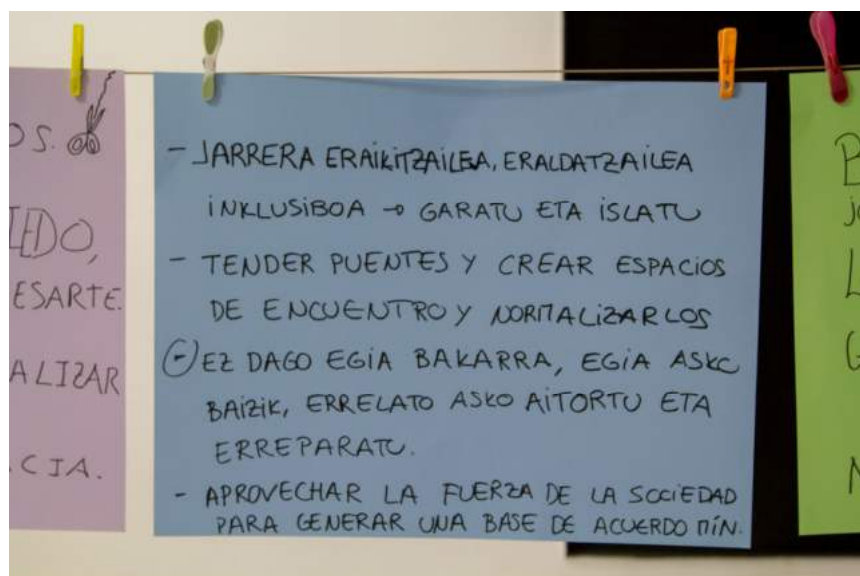 OS.
IEDO,
ESARTE.
ALIZAR
CIA.
- JARRERA ERAIKITZAILEA, ERALDATZAILEA
INKLUSIBOA → GARATU ETA ISLATU
- TENDER PUENTES Y CREAR ESPACIOS
DE ENCUENTRO Y NORMALIZARLOS
- EZ DAGO EGIA BAKARRA, EGIA ASKO
BAIZIK, ERRELATO ASKO AITORTU ETA
ERREPARATU.
- APROVECHAR LA FUERZA DE LA SOCIEDAD
PARA GENERAR UNA BASE DE ACUERDO MÍN.